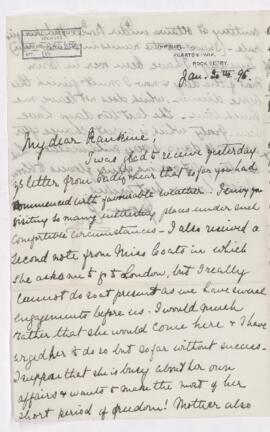 ROCK FERRY.
Jan. 20th 96.
My dear Rankine
I was glad to receive yesterday
letter from & hear that so far you had
commenced with favourable weather. I envy you
visiting so many interesting places under such
comfortable circumstances - I also received a
second note from Miss Coats in which
she asks me to go to London, but I really
cannot do so at present as we have several
engagements before us. I would much
rather that she would come here & I have
urged her to do so but so far without success -
I suppose that she is busy about her own
affairs & wants to make the most of her
short period of freedom! Mother also